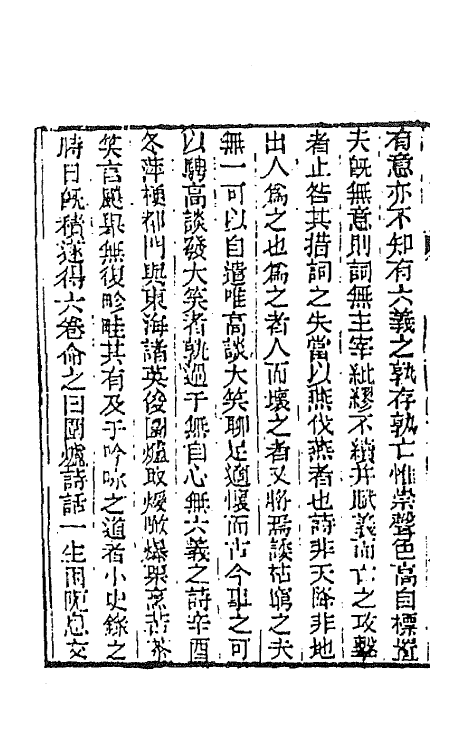 有意亦不知有六義之孰存孰亡惟崇聲色高自標置
夫旣無意則詞無主宰紕繆不續并賦義而亡之攻擊
者止咎其措詞之失當以燕伐燕者也詩非天降非地
出人爲之也爲之者人而壞之者又將焉諉枯窮之夫
無一可以自遣唯高談大笑聊足適懷而古今事之可
以騁高談發大笑者孰過于無自心無六義之詩辛酉
冬萍梗都門與東海諸英俊圍爐取煖啖爆栗烹苦茶
笑言飈舉無復畛畦其有及于吟咏之道者小史錄之
時日旣積遂得六卷命之曰圍爐詩話一生困阨息交